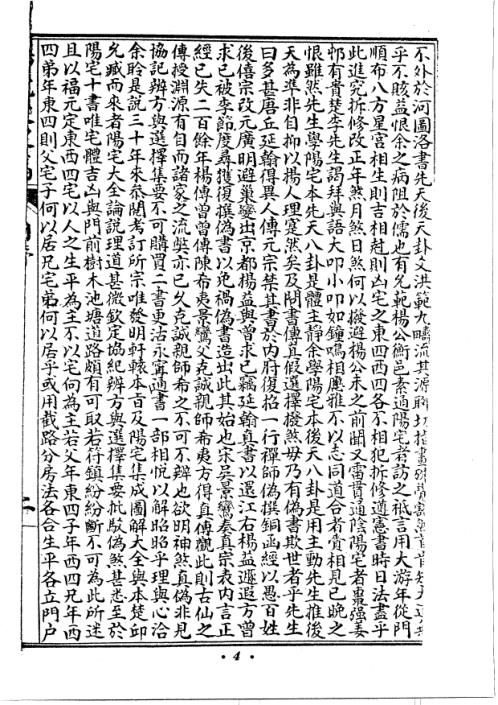 不外於河圖洛書先天後天卦文洪範九疇流其源
乎不賅益恨余之病阻於儒也有允範楊公衡邑素通陽宅者訪之祇言用大游年從門
順布八方星宮相生則吉相尅則凶宅之東西四各不相犯拆修遵憲書時日法盡乎
此進究拆修改正年煞月煞日煞何以擬避楊公未之前聞又雷貫通陰陽宅者棗強姜
邨有貴楚李先生謁拜與語大叩小叩如鐘鳴相應雅不以志同道合者賞相見已晚之
恨雖然先生學陽宅本先天八卦是體主靜余學陽宅本後天八卦是用主動先生推後
天為準非自抑以楊人理寔然矣及閱書傳真假選擇撥煞毋乃有偽書欺世者乎先生
曰多甚唐丘延翰得異人傳元宗禁其書於內府復搯一行禪師偽撰銅函經以愚百姓
後僖宗改元廣明避巢變出京都楊益與曾求已竊延翰真書以還江右楊益遯遐方曾
求已被李節度尋獲復撰偽書以免禍偽書造出此其始也宋吳景鸞奏真宗表內言正
經已失二百餘年楊傳曾曾傳陳希夷景鸞父克誠親師希夷方得真傳觀此則古仙之
傳授淵源有自而諸家之流獘亦已久克誠親師希之不可不辨也欲明神煞真偽非見
協記辨方與選擇集要不可購買二書更沽永甯通書一部相悅以解昭昭乎理與心洽
余聆是說三十年來叅閱考訂所宗唯發明軒轅本首及陽宅集成圖解大全與本楚邱
允臧而來者陽宅大全論說理道甚微欽定協紀辨方與選擇集要批駁偽煞甚悉至於
陽宅十書唯宅體吉凶與門前樹木池塘道路頗有可取若符鎮紛紛斷不可為此所迷
且以福元定東西四宅以人之生平為主不以宅向為主若父年東四子年西四兄年西
四弟年東四則父宅子何以居兄宅弟何以居乎或用截路分房法各合生平各立門戶
二
• 4 •